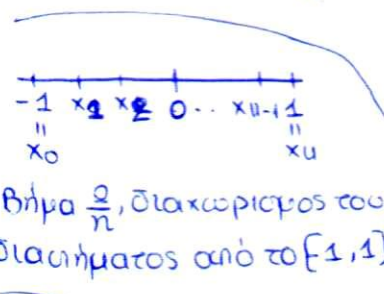 -1 x1 x2 0 .. xν-1 1
=  =
x0 xν
Βήμα 2/n, διαχωρισμός του
διαστήματος από το [-1,1]